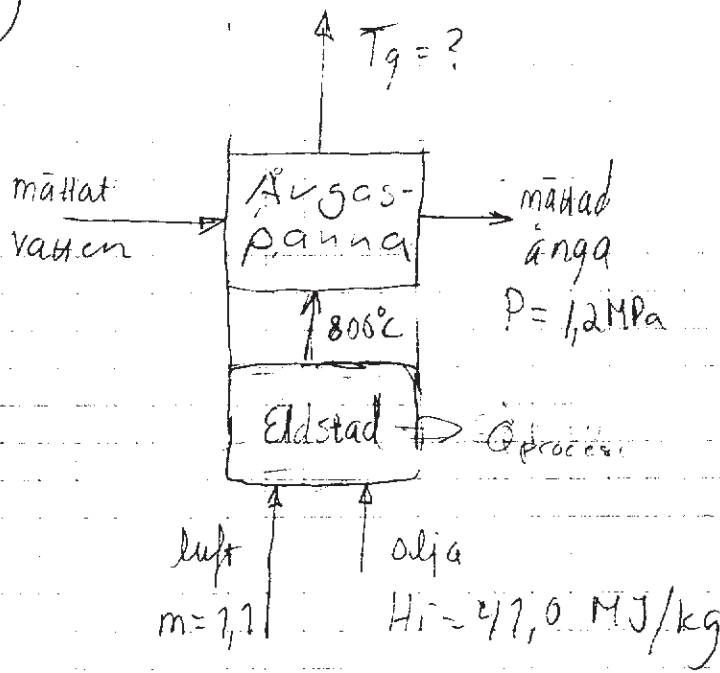 )
Tg = ?
mättat
vatten
Avgas-
panna
mättad
ånga
P = 1,2 MPa
800°C
Eldstad
Qprocess
luft
m = 1,1
olja
Hi = 41,0 MJ/kg